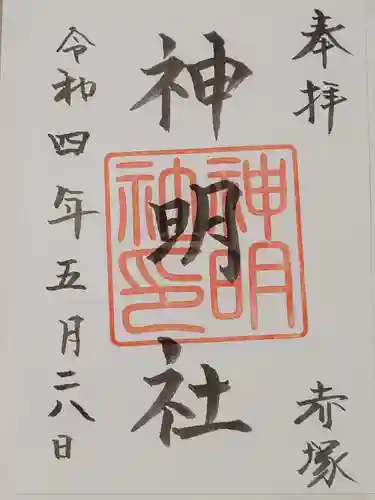 奉拝
赤塚
神明社
神明社印
令和四年五月二八日